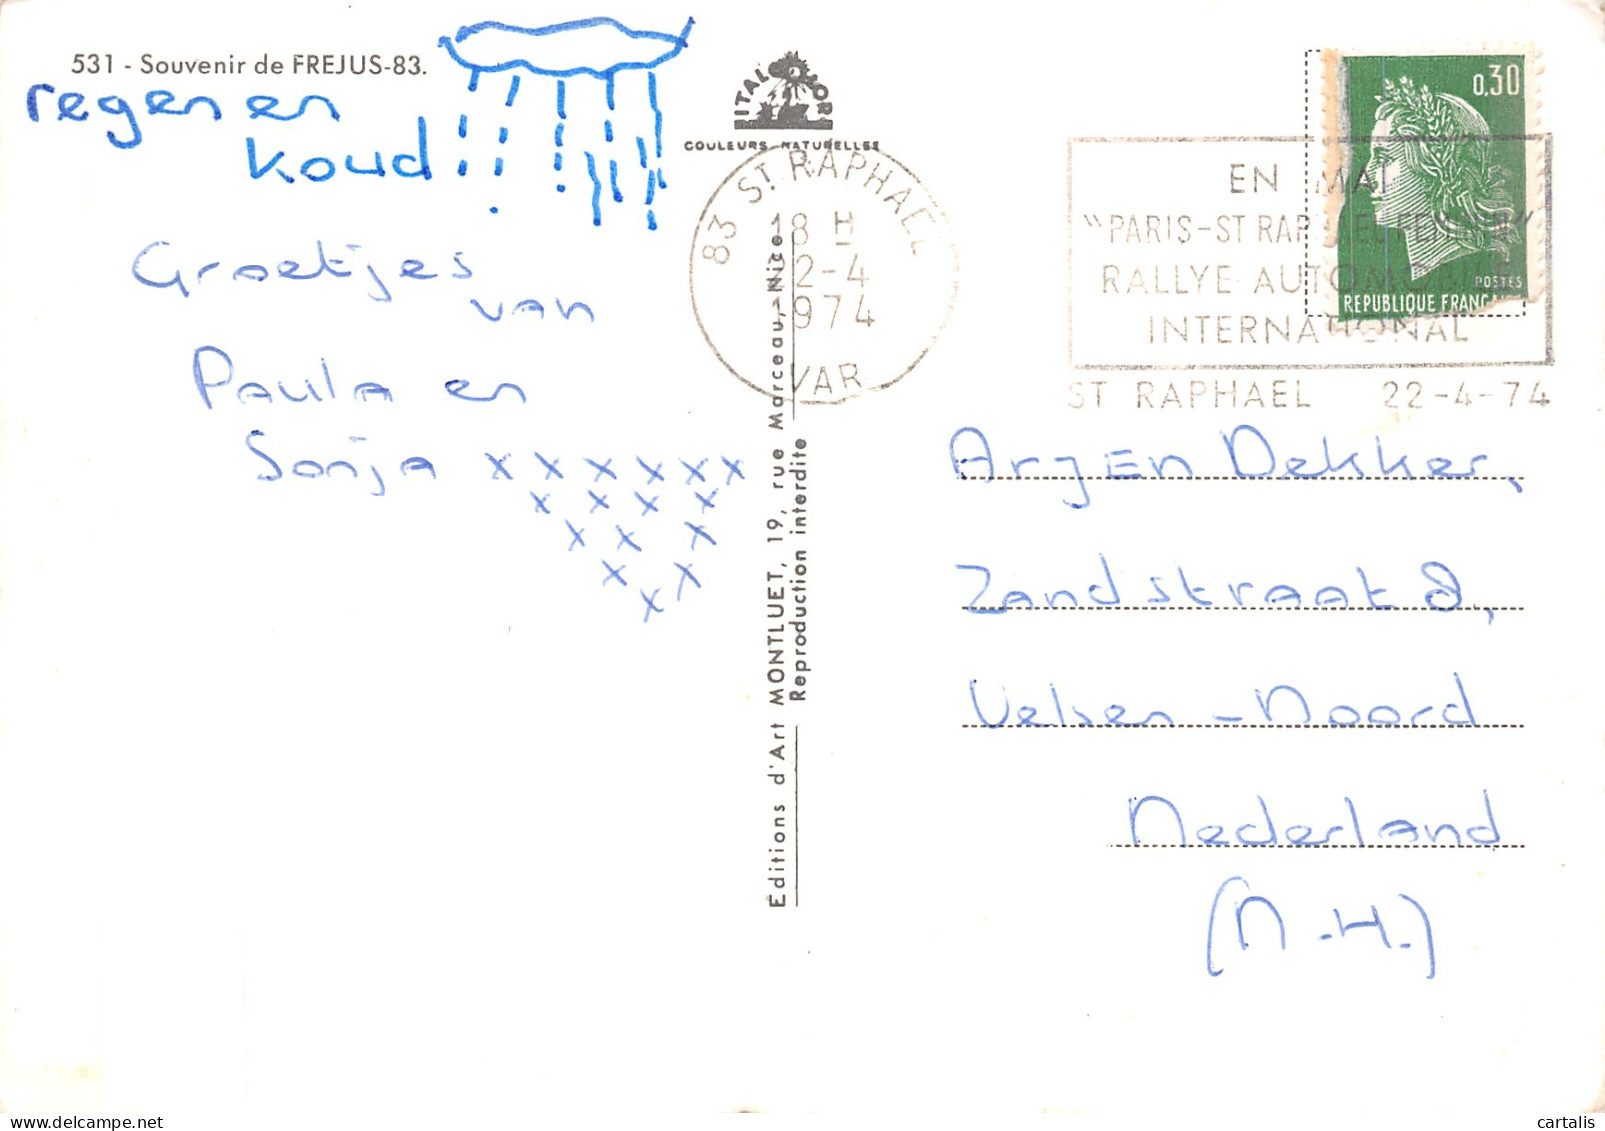 531 - Souvenir de FREJUS-83.
regen en
koud
Groetjes
van
Paula en
Sonja x x x x x x
x x x x
x x x
x x
x x
ITALCOLOR
COULEURS NATURELLES
Éditions d'Art MONTLUET, 19, rue Marceau, - Nice
Reproduction interdite
83 ST RAPHAEL
18 H
22-4
1974
VAR
EN MAI
"PARIS-ST RAPHAEL FEMININ"
RALLYE AUTOMOBILE
INTERNATIONAL
ST RAPHAEL 22-4-74
0,30
POSTES
REPUBLIQUE FRANÇAISE
Arjen Dekker,
Zandstraat 8,
Velsen-Noord
Nederland
(N.H.)
cartalis